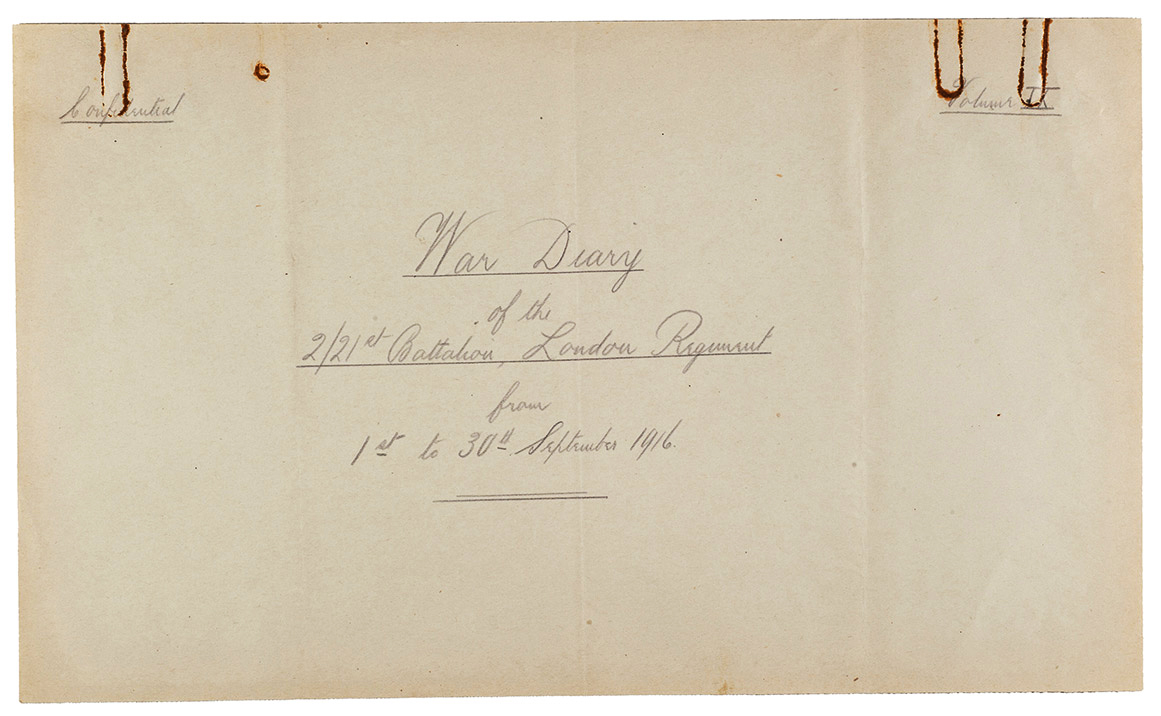 Confidential
Volume IX
War Diary
of the
2/21st Battalion, London Regiment
from
1st to 30th September 1916.